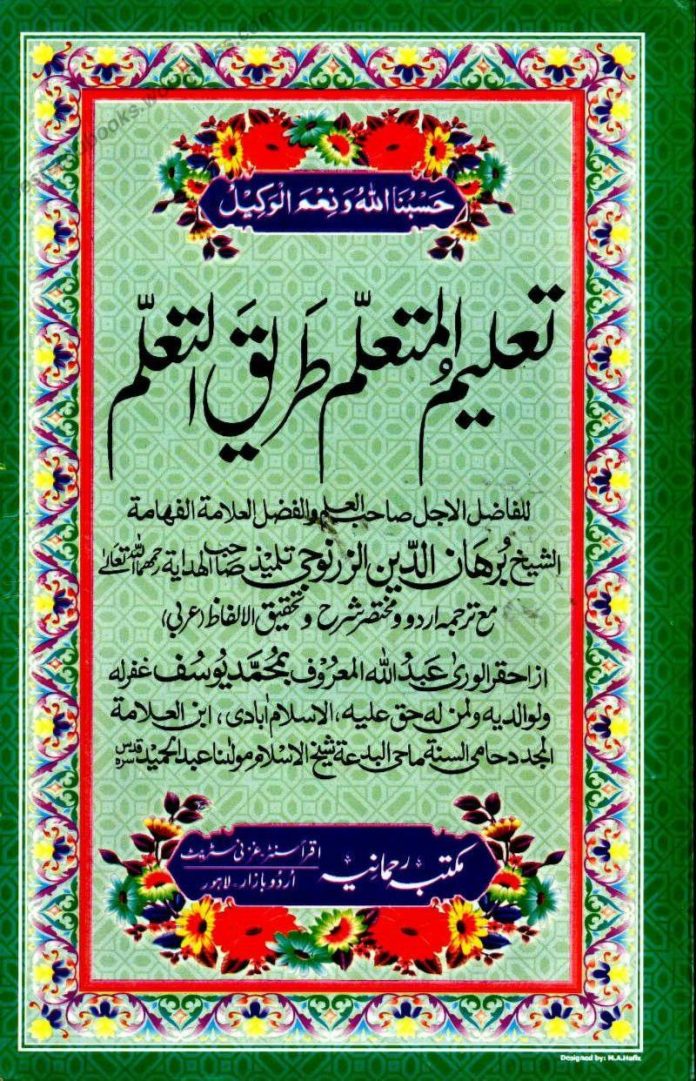 حَسْبُنَا اللهُ وَنِعْمَ الْوَكِيْلُ
تعلیمُ المتعلّم طَرِیقَ التعلّم
للفاضل الاجل صاحب العلم والفضل العلامة الفهامة
الشیخ بُرهَان الدّین الزرنوجی تلمیذ صاحب الهدایة رحمهما الله تعالیٰ
مع ترجمہ اردو و مختصر شرح و تحقیق الالفاظ (عربی)
از احقر الوریٰ عَبدُ الله المعروف بمُحمَّد یُوسُف غفرله
ولوالدیه ولمن له حق علیه، الاسلام اٰبادی، ابن العلامة
المجدد حامی السنة ماحی البدعة شیخ الاسلام مولٰنا عبد الحمید قدس سرہ
مکتبہ رحمانیہ
اقرأ سنٹر غزنی سٹریٹ
اُردُو بازار۔ لاہور
Designed by: M.A.Hafiz